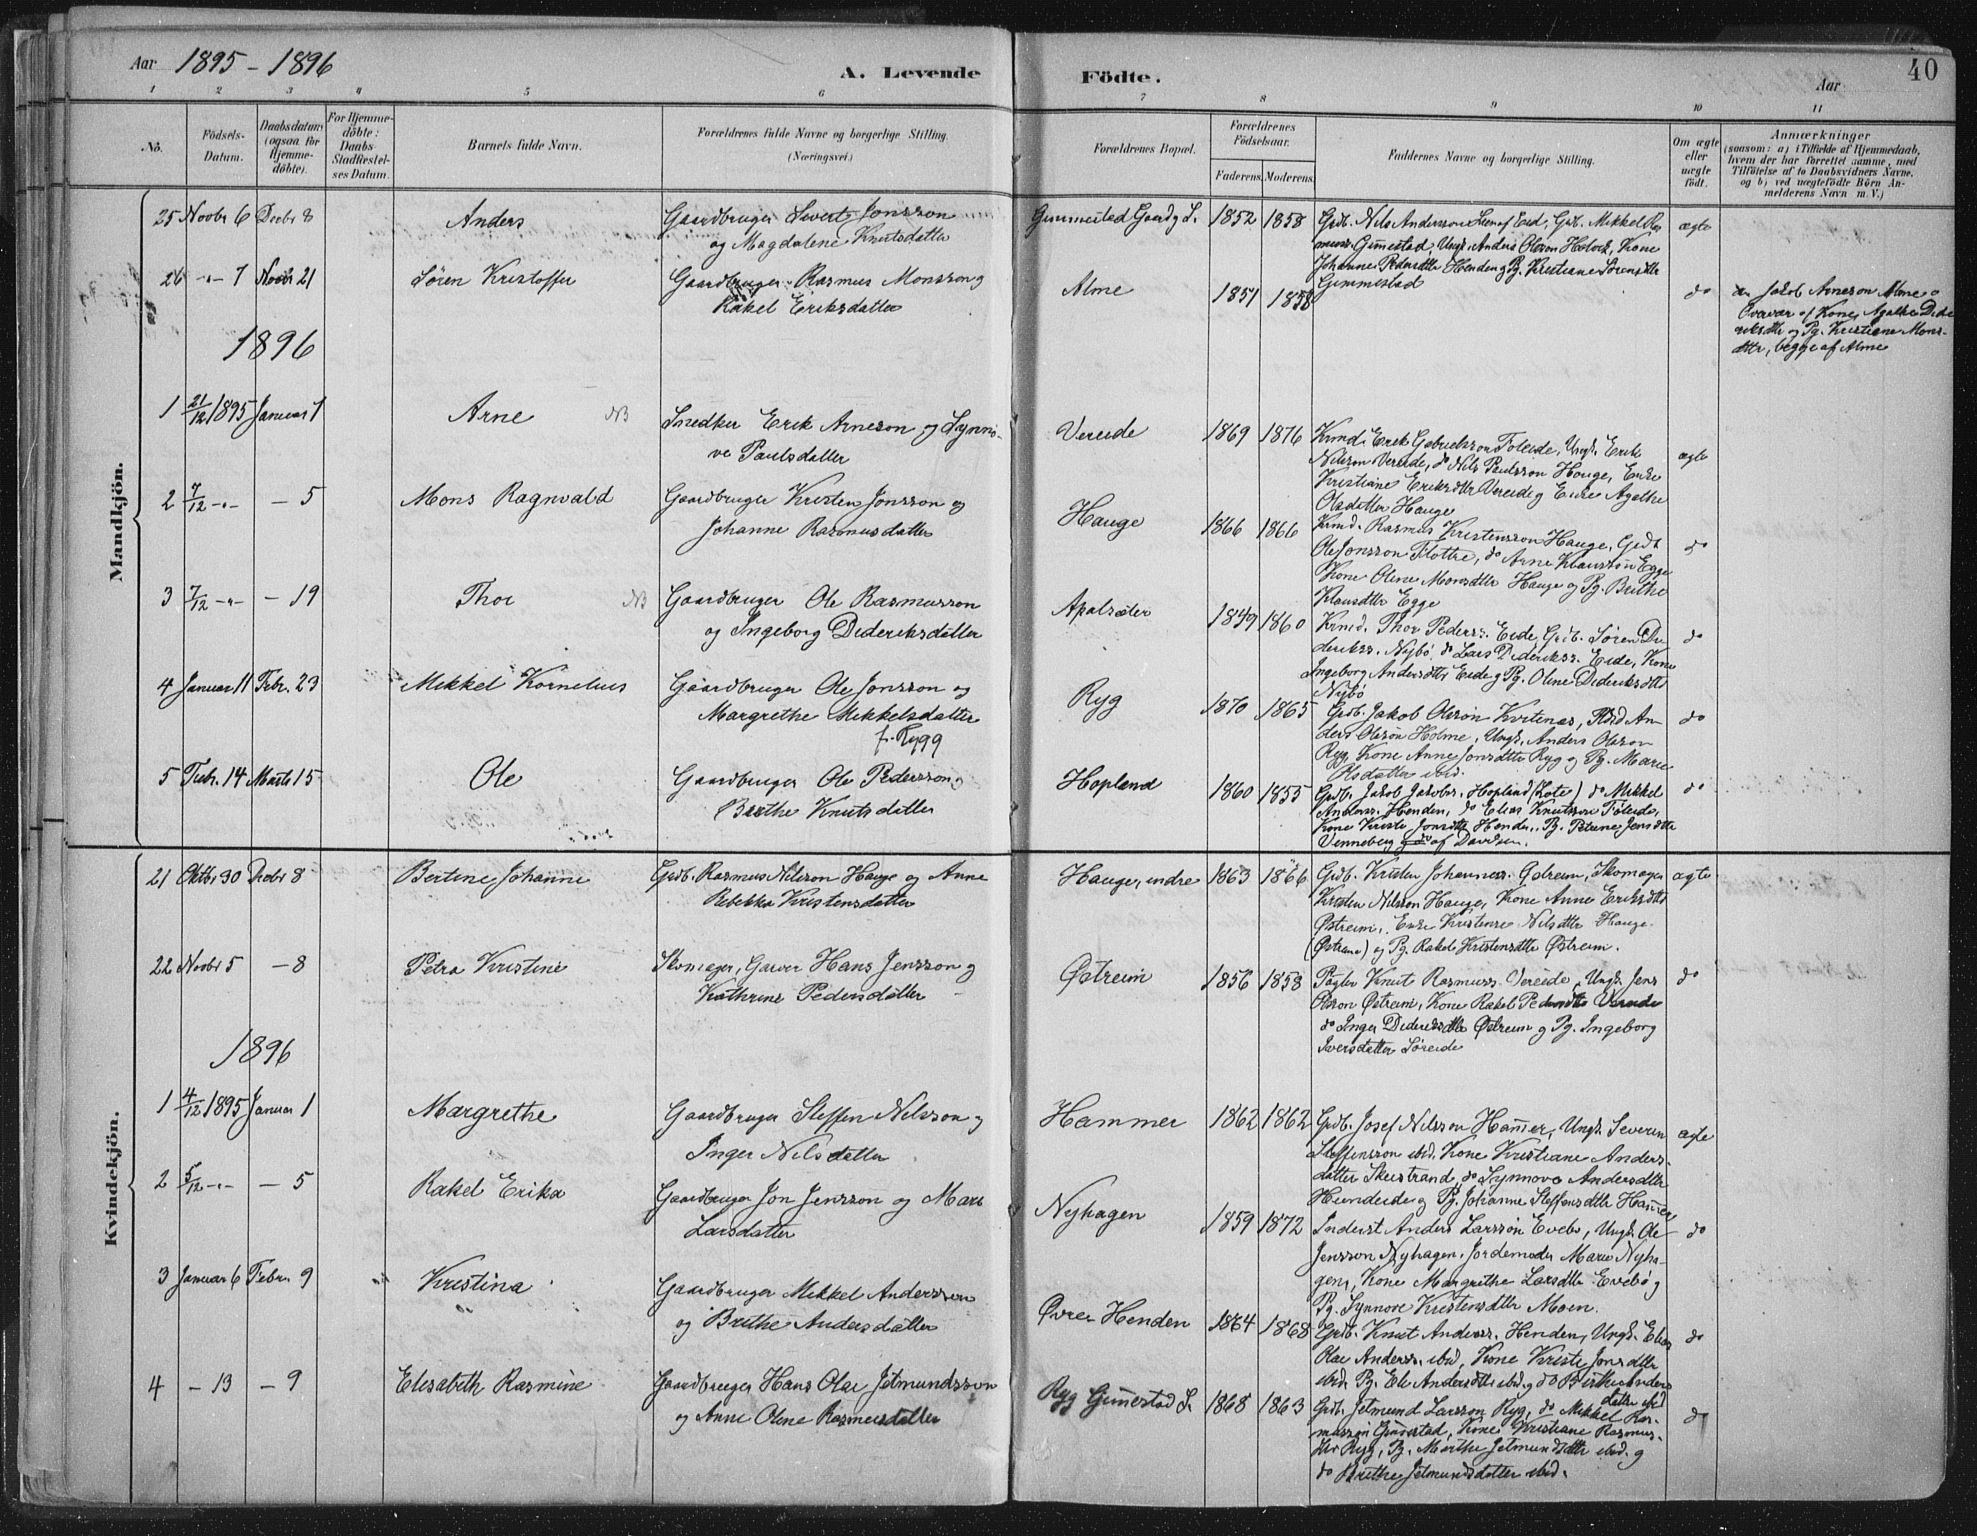 Aar 1895 - 1896
A. Levende Födte.
Aar
40
1 2 3 4 5 6 7 8 9 10 11
No.
Födsels-Datum.
Daabsdatum (ogsaa for Hjemme-döbte).
For Hjemme-döbte: Daabs Stadfæstel-ses Datum.
Barnets fulde Navn.
Forældrenes fulde Navne og borgerlige Stilling. (Næringsvei.)
Forældrenes Bopæl.
Forældrenes Födselsaar.
Faderens. Moderens.
Faddernes Navne og borgerlige Stilling.
Om ægte eller uægte födt.
Anmærkninger
(saasom: a) i Tilfælde af Hjemmedaab,
hvem der har forrettet samme, med
Tilföielse af to Daabsvidners Navne.
og b) ved uægtefödte Börn An-
melderens Navn m. V.)
Mandkjön.
25 Novbr 6 Decbr 8 Anders Gaardbruger Sivert Jonsson
og Magdalene Knutsdatter
Gimmestad Gaard y S. 1852 1858 Grdb. Nils Andersson Leen af Eid, Grdb. Mikkel Ras
muss. Gimestad, Ungk. Anders Oleson Holvik, Kone
Johanne Pedersdtr Henden og Pg. Kristiane Sörensdtr
Gimmestad
ægte
26 -"- 7 Novbr 21 Sören Kristoffer Gaardbruger Rasmus Monsson og
Rakel Eriksdatter
Alme 1851 1858 do
a. Jakob Arneson Alme
Kone Agathe Dide
riksdtr og Pg. Kristiane Mons-
dttr, begge af Alme
1896
1 21/12 1895 Januar 1 Arne NB Snedker Erik Arneson og Synni-
ve Paulsdatter
Vereide 1869 1876 Krmd. Erik Gabrielsson Foleide, Ungk. Erik
Nilsson Vereide, do Nils Paulsson Hauge, Enke
Kristiane Eriksdtr Vereide og Enke Agathe
Olsdatter Hauge
ægte
2 7/12 -"- - 5 Mons Ragnvald Gaardbruger Kristen Jonsson og
Johanne Rasmusdatter
Hauge 1866 1866 Krmd. Rasmus Kristensson Hauge, Grdb
Ole Jonsson Flottre, do Arne Klausson Egge
Kone Oline Monsdtr Hauge og Pg. Brithe
Klausdttr Egge
do
3 7/12 -"- - 19 Thor NB Gaardbruger Ole Rasmusson
og Ingeborg Dideriksdatter
Apalsæter 1849 1860 Krmd. Thor Peders. Eide, Grdb. Sören Di
derikss. Nybö, do Lars Diderikss. Eide, Kone
Ingeborg Andersdtr Eide og Pg. Oline Dideriksdtr
Nybö
do
4 Januar 11 Febr. 23 Mikkel Kornelius Gaardbruger Ole Jonsson og
Margrethe Mikkelsdatter
f. Rygg
Ryg 1870 1865 Grdb. Jakob Oleson Kvitenes, An-
ders Olsson Holme, Ungk. Anders Olsson
Ryg, Kone Anne Jonsdttr Ryg og Pg. Marie
Olsdatter ibid.
do
5 Febr. 14 Marts 15 Ole Gaardbruger Ole Pedersson og
Brithe Knutsdatter
Hopland 1860 1855 Grdb. Jakob Jakobs. Hopland (Lote) do Mikkel
Anders. Henden, do Elias Knutsson Foleide,
Kone Kristi Jonsdttr Henden, Pg. Petrine Jensdttr
Venneberg af Davidsen.
do
Kvindekjön.
21 Oktbr 30 Decbr 8 Bertine Johanne Grdb. Rasmus Nilsson Hauge og Anne
Rebekka Kristensdatter
Hauge, indre 1863 1866 Grdb. Kristen Johanness. Gotreim, Skomager
Kristen Nilsson Hauge, Kone Anne Eriksdtr
Östreim, Enke Kristense Nilsdttr Hauge
(Östrane) og Pg. Rakel Kristensdttr Östreim.
ægte
22 Novbr 5 - 8 Petra Kristine Skomager, Garver Hans Jensson og
Kathrine Pedersdatter
Östreim 1856 1858 Fogter Knut Rasmuss. Vereide, Ungk. Jens
Olsson Östreim, Kone Rakel Pedersdtr Vereide
do Inger Dideriksdtr Östreim og Pg. Ingeborg
Iversdatter Söreide
do
1896
1 4/12 1895 Januar 1 Margrethe Gaardbruger Steffen Nilsson og
Inger Nilsdatter
Hammer 1862 1862 Grdb. Josef Nilsson Hammer, Ungk. Severin
Steffensson ibid. Kone Kristiane Anders-
datter Skeistrand, do Synnove Andersdttr
Hundeide og Pg. Johanne Steffensdttr Hammer
ægte
2 5/12 -"- - 5 Rakel Erika Gaardbruger Jon Jensson og Mari
Larsdatter
Nyhagen 1859 1872 Inderst Anders Larsson Evebö, Ungk. Ole
Jensson Nyhagen, Jordemoder Marie Nyha-
gen, Kone Margrethe Larsdttr Evebö og
Pg. Synnove Kristensdttr Moen.
do
3 Januar 6 Febr. 9 Kristina Gaardbruger Mikkel Andersson
og Brithe Andersdatter
Övre Henden 1864 1868 Grdb. Knut Anderss. Henden, Ungk. Elias
Olai Anderss. ibid, Kone Kristi Jonsdttr
ibid, Pg. Eli Andersdttr ibid og do Birthe Anders
datter ibid
do
4 - 13 - 9 Elisabeth Rasmine Gaardbruger Hans Olai Jetmundsson
og Anne Oline Rasmusdatter
Ryg Gimestad S. 1868 1863 Grdb. Jetmund Larsson Ryg, do Mikkel Ras-
musson Gimestad, Kone Kristiane Rasmus-
dtr Ryg, Pg. Marthe Jetmundsdttr ibid. og
do Brithe Jetmundsdatter ibid.
do